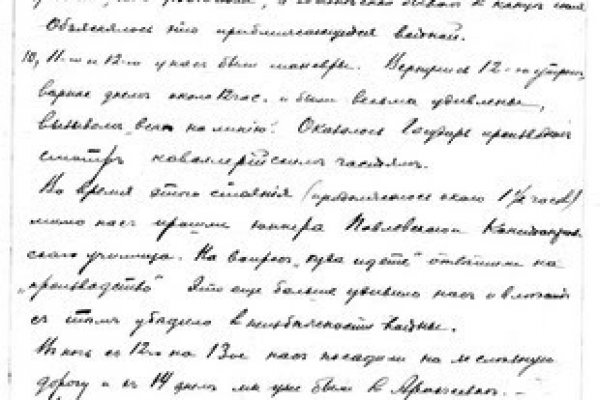 Объяснялось это приближающейся войной.
10, 11-го и 12-го у нас были маневры. Вернулись 12-го утром,
вернее днем около 12 час. и были весьма удивлены,
вызовом „всех на линию". Оказалось Государь производил
смотръ кавалерийским частям.
Во время этого стояния (продолжалось около 1½ часов)
мимо нас прошли юнкера Павловского
училища. На вопрос „куда идете" ответили на
„производство" Это еще больше удивило нас и
с тем убедило в неизбежности войны.
В ночь с 12-го на 13-ое нас посадили на железную
дорогу и в 14 днем мы уже были в